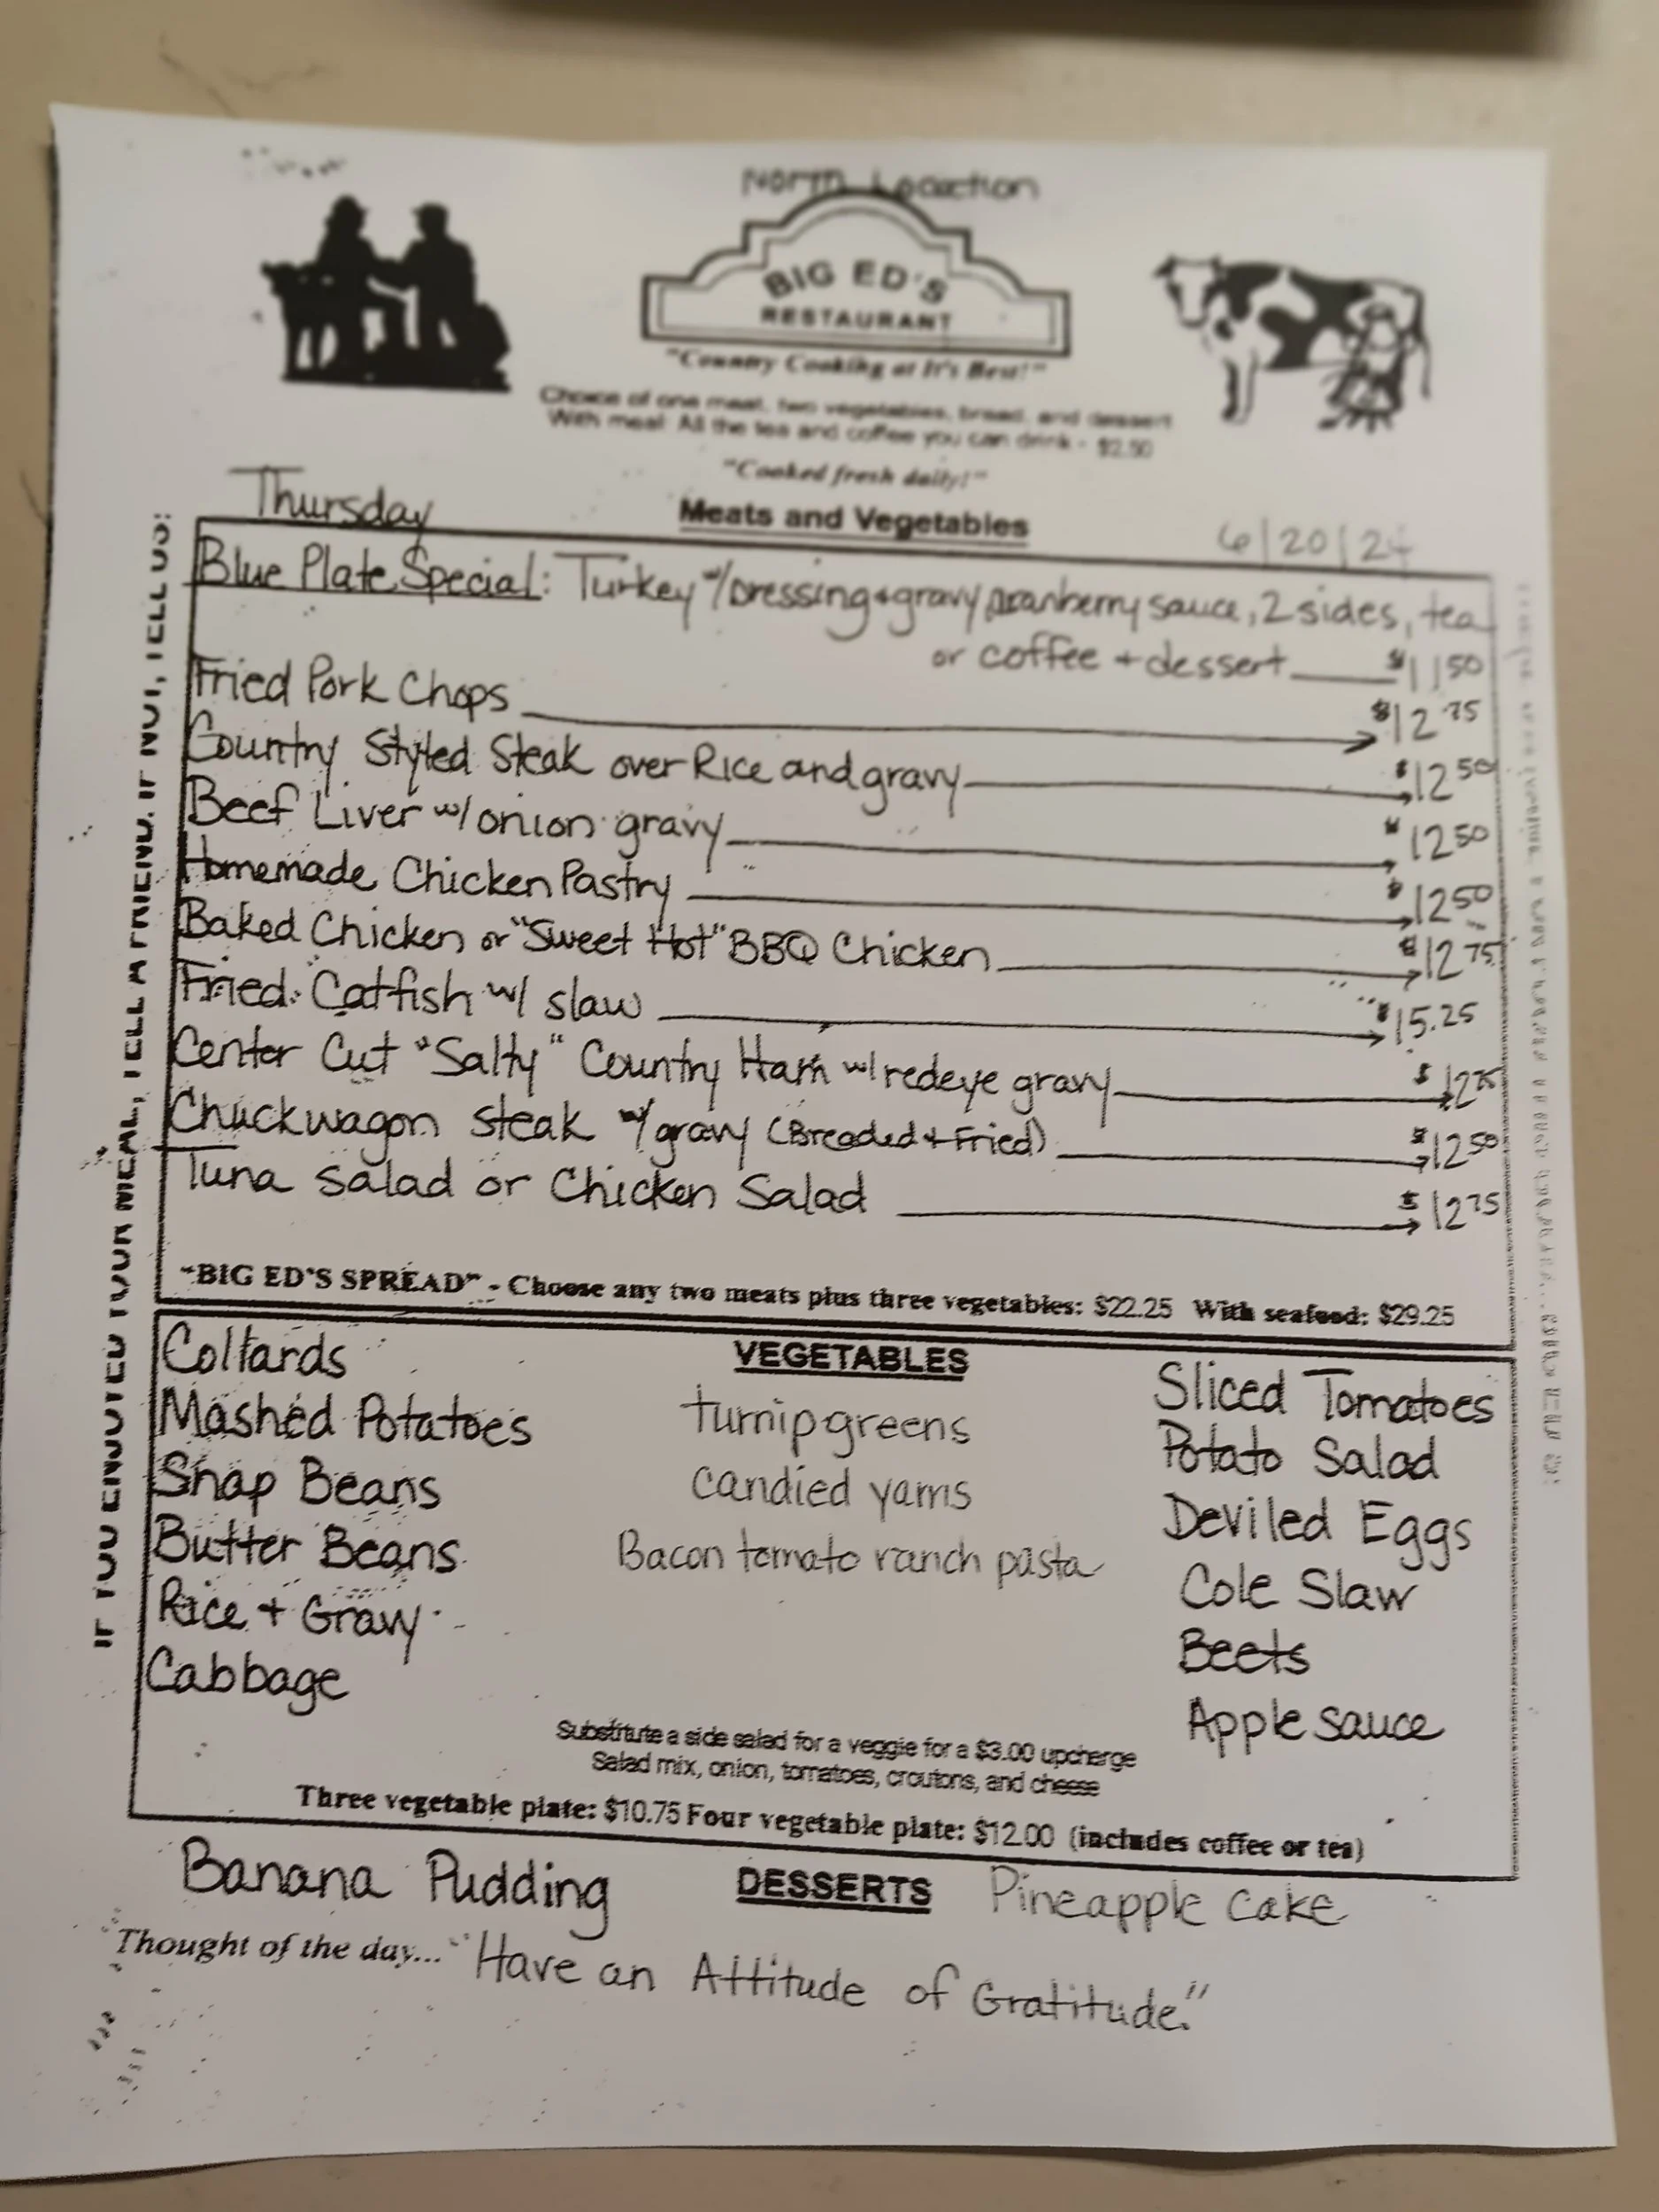 North Location
BIG ED'S
RESTAURANT
"Country Cooking at It's Best!"
Choice of one meat, two vegetables, bread, and dessert
With meal: All the tea and coffee you can drink - $2.50
"Cooked fresh daily!"
Thursday
Meats and Vegetables
6/20/24
Blue Plate Special: Turkey w/Dressing+gravy, cranberry sauce, 2 sides, tea
or coffee + dessert $11.50
Fried Pork Chops $12.75
Country Styled Steak over Rice and gravy $12.50
Beef Liver w/ onion gravy $12.50
Homemade Chicken Pastry $12.50
Baked Chicken or "Sweet Hot" BBQ Chicken $12.75
Fried Catfish w/ slaw $15.25
Center Cut "Salty" Country Ham w/ redeye gravy $12.75
Chuckwagon steak w/gravy (Breaded + Fried) $12.50
Tuna Salad or Chicken Salad $12.75
"BIG ED'S SPREAD" - Choose any two meats plus three vegetables: $22.25 With seafood: $29.25
VEGETABLES
Collards
Mashed Potatoes
Snap Beans
Butter Beans
Rice + Gravy
Cabbage
turnip greens
candied yams
Bacon tomato ranch pasta
Sliced Tomatoes
Potato Salad
Deviled Eggs
Cole Slaw
Beets
Apple sauce
Substitute a side salad for a veggie for a $3.00 upcharge
Salad mix, onion, tomatoes, croutons, and cheese
Three vegetable plate: $10.75 Four vegetable plate: $12.00 (includes coffee or tea)
Banana Pudding
DESSERTS
Pineapple cake
Thought of the day... "Have an Attitude of Gratitude."
IF YOU ENJOYED YOUR MEAL, TELL A FRIEND. IF NOT, TELL US: